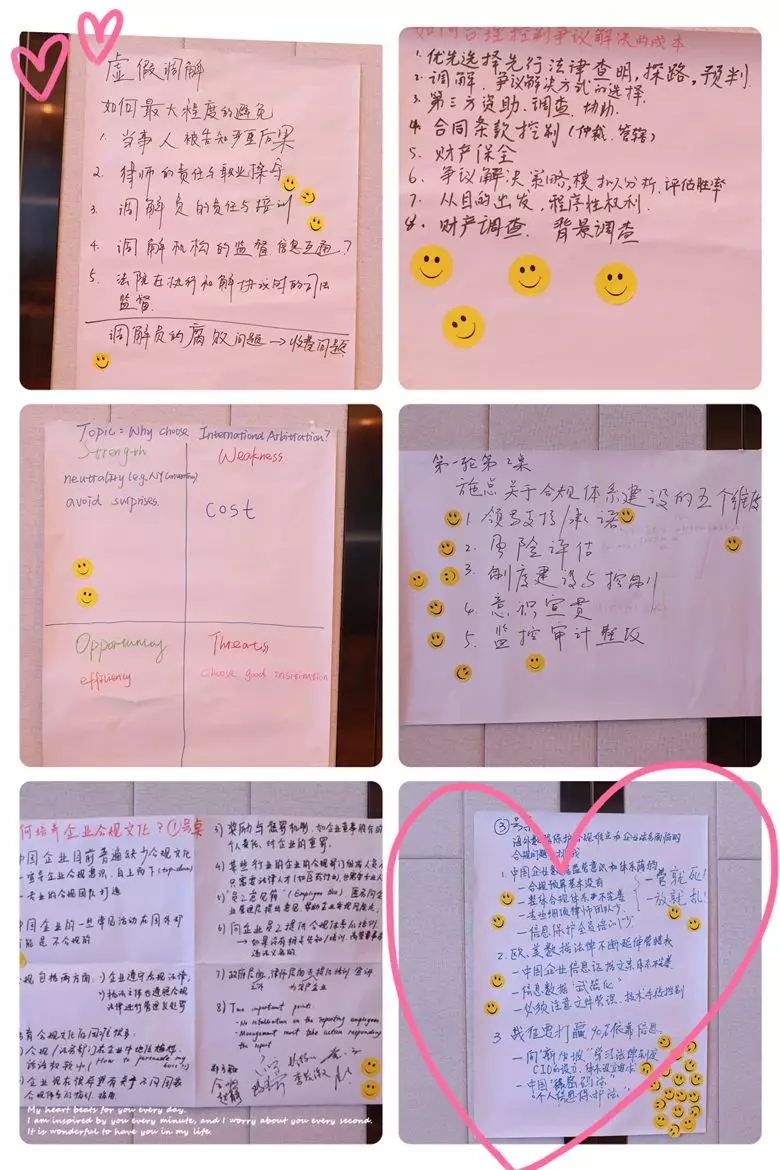 虚假调解
如何最大程度的避免
1. 当事人被告知严重后果
2. 律师的责任与职业操守
3. 调解员的责任与培训
4. 调解机构的监督信息互通？
5. 法院在执行和解协议时的司法
监督.
调解员的腐败问题→收费问题
如何合理控制争议解决的成本
1. 优先选择先行法律查明，探路，预判.
2. 调解. 争议解决方式的选择
3. 第三方资助. 调查. 协助.
4. 合同条款控制（仲裁. 管辖）
5. 财产保全
6. 争议解决策略，模拟分析. 评估胜率
7. 从目的出发，程序性权利.
8. 财产调查. 背景调查
Topic = Why choose International Arbitration?
Strength
neutrality (e.g. NY Convention)
avoid surprises.
Weakness
cost
Opportunity
efficiency
Threats
choose good insisitution
第一轮第2桌
施总关于合规体系建设的五个维度
1. 领导支持/承诺
2. 风险评估
3. 制度建设与控制
4. 意识宣贯
5. 监控审计整改
何培育企业合规文化？①号桌
中国企业目前普遍缺少合规文化
自上而下 (top-down)
- 专业的合规团队打造
中国企业的一些常见活动在国外可
能是不合规的
规包括两方面：1) 企业遵守合规法律，
(How to persuade my
3) 奖励与惩罚机制，
个人责任，对企业的重罚.
4) 某些行业的企业的合规部门
5) "员工意见箱" (Employee Box)
6) 向企业员工提供合规体系的培训
7) 政府层面，律所层面提供培训
8) Two important points:
- No retaliation on the reporting employees
- Management must take action responding
the report
My heart beats for you every day.
I am inspired by you every minute, and I worry about you every second.
It is wonderful to have you in my life.
③号桌
海外数据保护合规
合规问题
1. 中国企业数据监管意识和体系薄弱
- 合规预算基本没有
- 整体合规体系不完善
- 信息保护全员培训少
一管就死！
一放就乱！
2. 欧、美数据法律不断延伸管辖权
- 中国企业
- 信息数据"武器化"
- 必须注意文件管理、技术手段控制
3.
- 中国
"个人信息保护法"